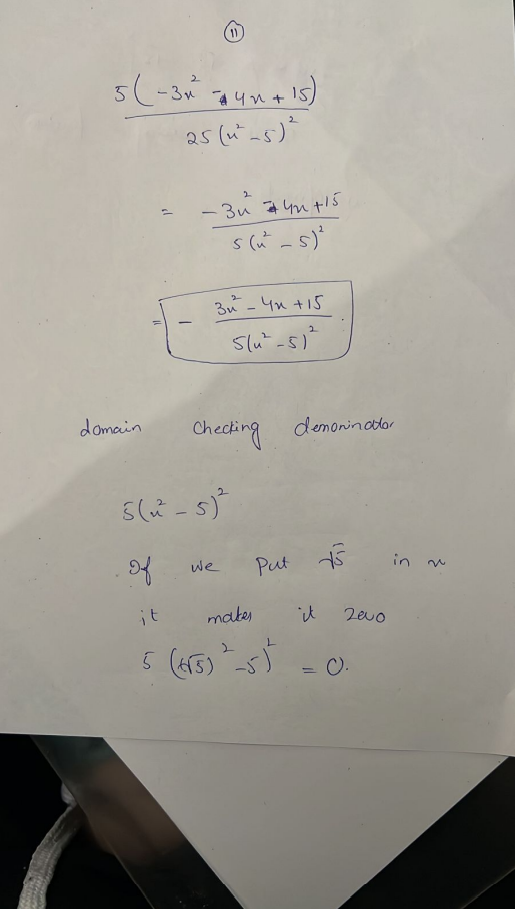 11
5(-3x² - 4x + 15)
25(x² - 5)²
= -3x² - 4x + 15
5(x² - 5)²
= - 3x² - 4x + 15
5(x² - 5)²
domain checking demoninator
5(x² - 5)²
If we put √5 in x
it makes it zero
5 ((√5)² - 5)² = 0.